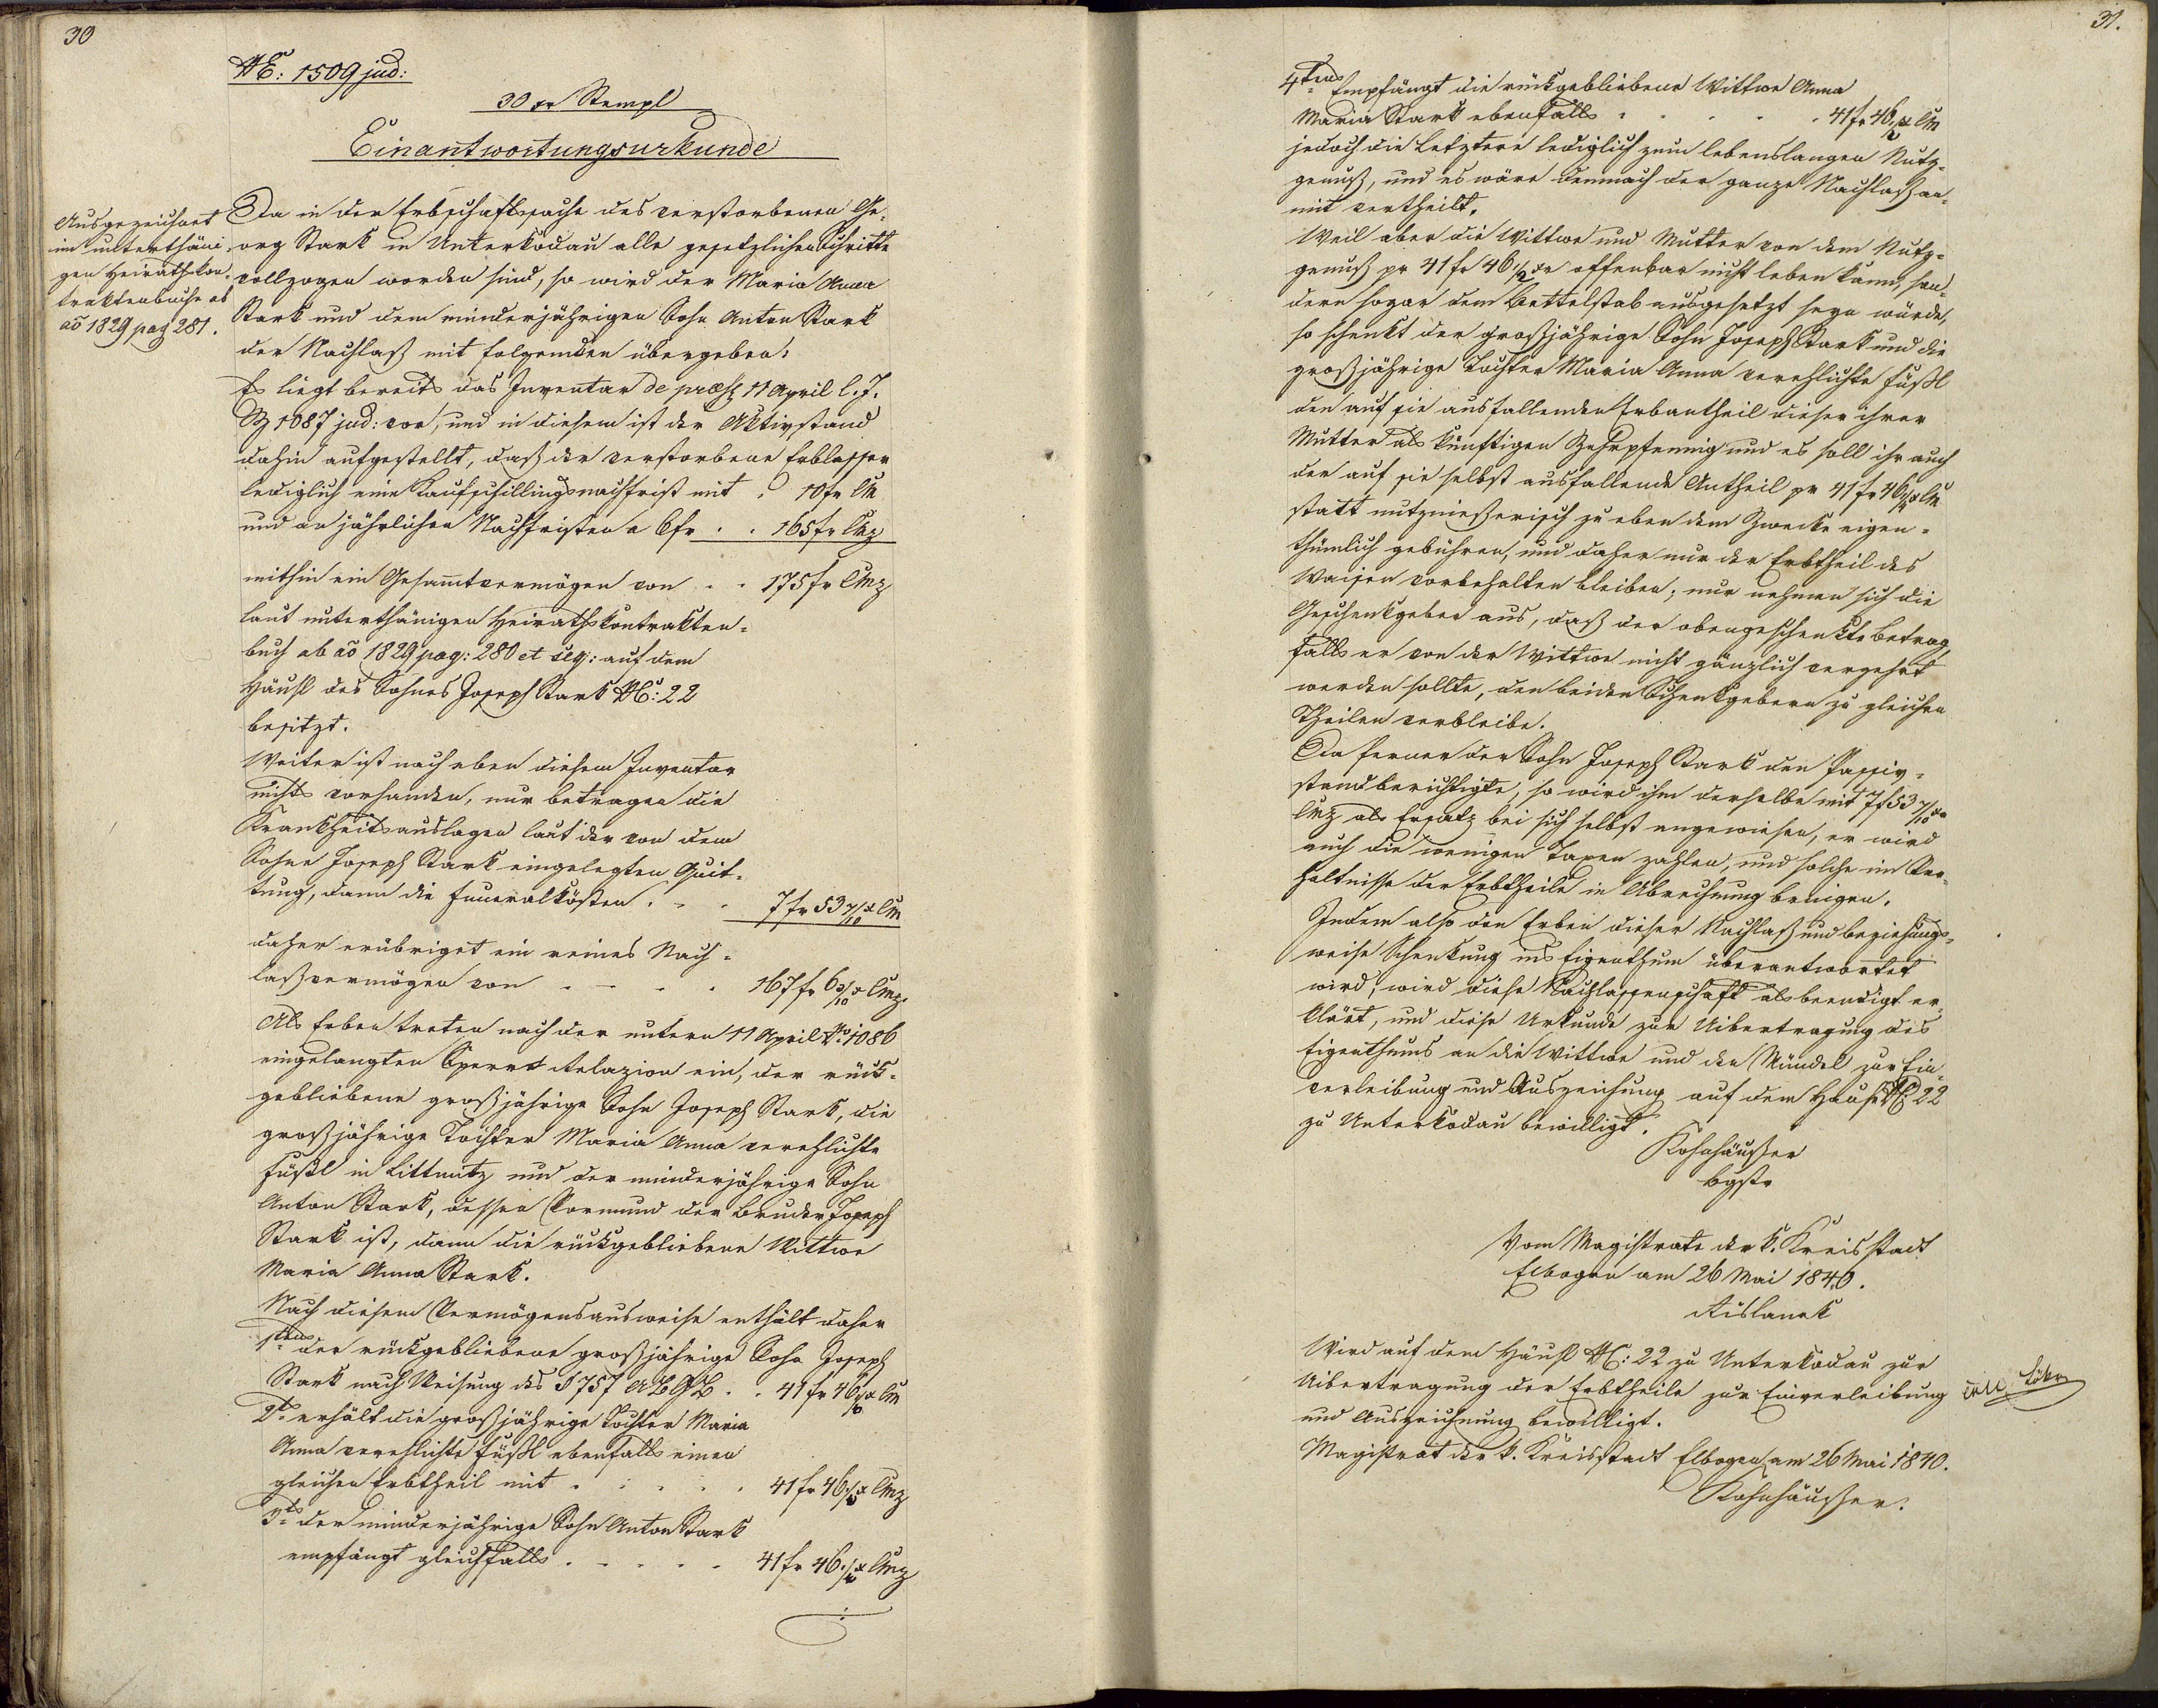 30
NE: 1509 jud:
30 xr Stempl
Einantwortungsurkunde
Ausgezeichnet
im unterthäni-
gen Heirathskon-
traktenbuche ab
ao 1829 pag 281.
Da in der Erbschaftssache des verstorbenen Ge-
org Stark in Unterkodau alle gesetzlichen Schritte
vollzogen worden sind, so wird der Maria Anna
Stark und dem minderjährigen Sohn Anton Stark
der Nachlaß mit folgenden übergeben:
Es liegt bereits das Inventar de präs 11 April l. J.
Z 1087 jud: vor, und in diesem ist der Aktivstand
dahin aufgestellt, daß der verstorbene Erblasser
lediglich eine Kaufschillingsnachfrist mit . 10 fr CM
und an jährlichen Nachfristen a 6 fr . . 165 fr CMz
mithin ein Gesammtvermögen von . . 175 fr CMz
laut unterthänigen Heirathskontrakten-
buch ab ao 1829 pag: 280 et seq: auf dem
Häusl des Sohnes Joseph Stark NC: 22
besitzt.
Weiter ist nach eben diesem Inventar
nichts vorhanden, nur betragen die
Krankheitsauslagen laut der von dem
Sohne Joseph Stark eingelegten Quit-
tung, dann die Funeralkösten . . . 7 fr 53 7/10 x CM
daher erübriget ein reines Nach-
laßvermögen von . . . . 167 fr 6 3/10 x CMz.
Als Erben treten nach der untern 11 April No 1086
eingelangten Sperrs Relazion ein, der rück-
gebliebene großjährige Sohn Joseph Stark, die
großjährige Tochter Maria Anna verehlichte
Füßl in Littmitz und der minderjährige Sohn
Anton Stark, dessen Vormund der Bruder Joseph
Stark ist, dann die rückgebliebene Wittwe
Maria Anna Stark.
Nach diesem Vermögensausweise enthält daher
1tens der rückgebliebene großjährige Sohn Joseph
Stark nach Weisung des § 757 ABGB . . 41 fr 46 x CM
2ts erhält die großjährige Tochter Maria
Anna verehlichte Füßl ebenfalls einen
gleichen Erbtheil mit . . . . . 41 fr 46 x CMz
3ts der minderjährige Sohn Anton Stark
empfängt gleichfalls . . . . . 41 fr 46 x CMz
31.
4tens Empfängt die rückgebliebene Wittwe Anna
Maria Stark ebenfalls . . . . . 41 fr 46 1/2 x CM
jedoch die Letztere lediglich zum lebenslangen Nutz-
genuß, und es wäre demnach der ganze Nachlaß an-
mit vertheilt.
Weil aber die Wittwe und Mutter von dem Nutz-
genuß pr 41 fr 46 1/2 xr offenbar nicht leben kann, son-
dern sogar dem Bettelstab ausgesetzt seyn würde,
so schenkt der großjährige Sohn Joseph Stark und die
großjährige Tochter Maria Anna verehlichte Füßl
den auf sie ausfallenden Erbantheil dieser ihrer
Mutter als künftigen Zehrpfennig und es soll ihr auch
der auf sie selbst ausfallende Antheil pr 41 fr 46 x CM
statt nutznießerisch zu eben dem Zwecke eigen-
thümlich gebühren, und daher nur der Erbtheil des
Waisen vorbehalten bleiben; nur nehmen sich die
Geschenkgeber aus, daß der obengeschenkte Betrag,
falls er von der Wittwe nicht gänzlich verzehrt
werden sollte, den beiden Schenkgebern zu gleichen
Theilen verbleibe.
Da ferner der Sohn Joseph Stark den Passiv-
stand berichtigte, so wird ihm derselbe mit 7 f 53 7/10 xr
CMz als Ersatz bei sich selbst angewiesen, er wird
auch die wenigen Taxen zahlen, und solche im Ver-
hältnisse der Erbtheile in Abrechnung bringen.
Indem also den Erben dieser Nachlaß und beziehungs-
weise Schenkung ins Eigenthum überantwortet
wird, wird diese Nachlassenschaft als beendigt er-
klärt, und diese Urkunde zur Uibertragung des
Eigenthums an die Wittwe und den Mündel zur Ein-
verleibung und Auszeichnung auf dem Hause NC 22
zu Unterkodau bewilligt.
Kohnhäußer
bgstr
Vom Magistrate der k. Kreisstadt
Elbogen am 26 Mai 1840.
Wird auf dem Häusl NC: 22 zu Unterkodau zur
Uibertragung der Erbtheile zur Einverleibung
und Auszeichnung bewilligt.
Magistrat der k. Kreisstadt Elbogen am 26 Mai 1840.
Kohnhäußer.